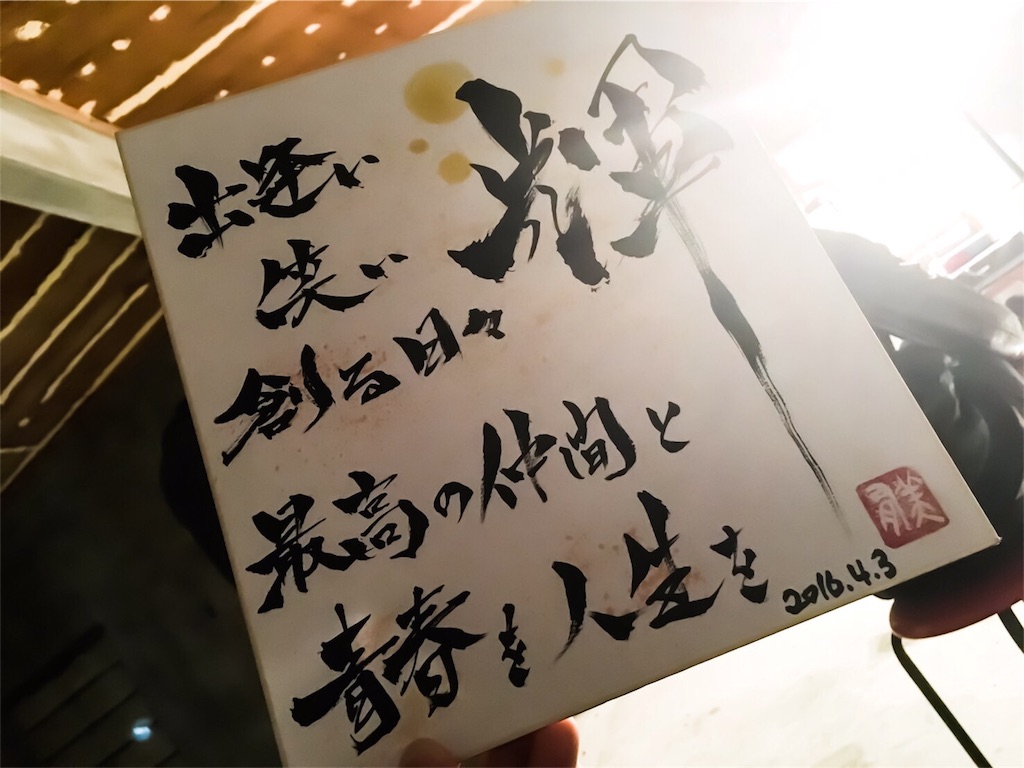 輝
出逢い
笑い
創る日々
最高の仲間と
青春を人生を
2016.4.3